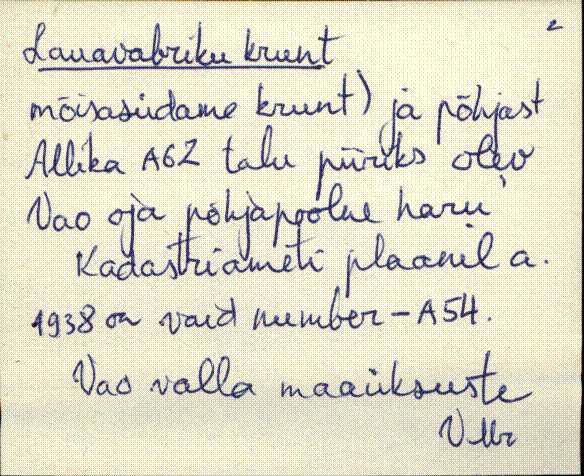 2
Lauavabriku krunt
mõisasüdame krunt) ja põhjast
Allika A62 talu piiriks olev
Vao oja põhjapoolne haru
Kadastriameti plaanil a.
1938 on vaid number - A54.
Vao valla maaüksuste